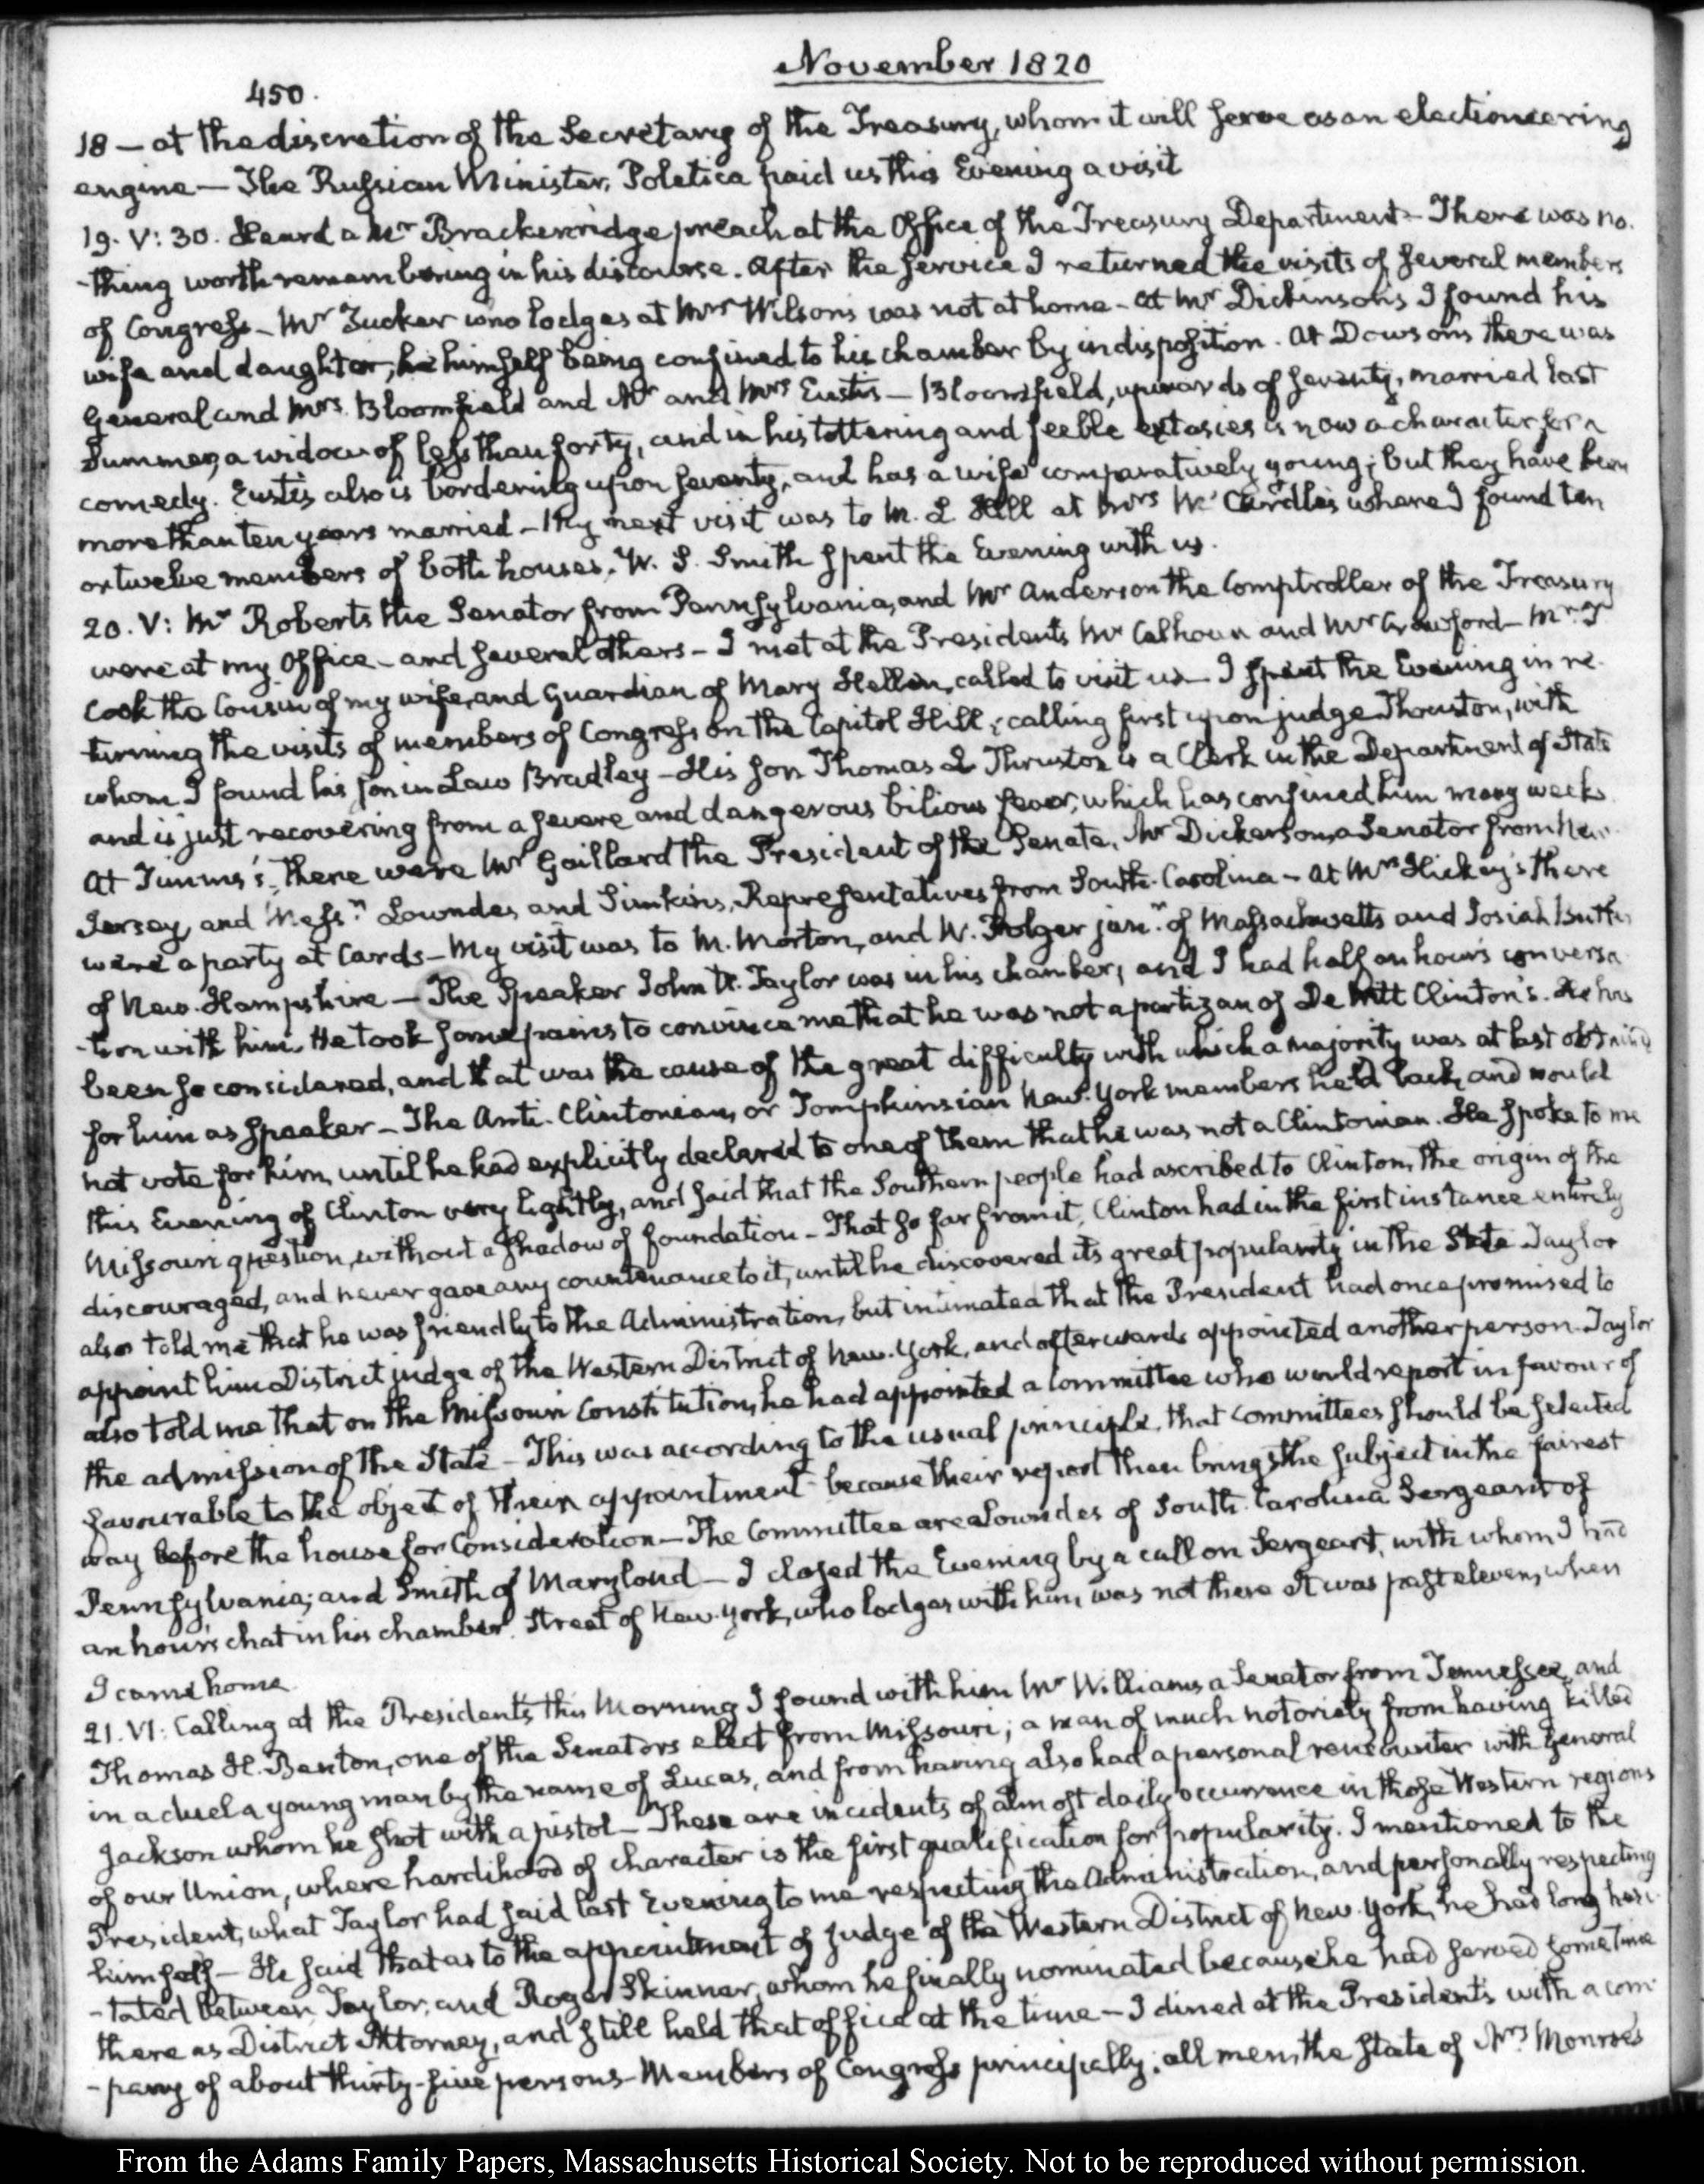 November 1820
450.
18 — at the discretion of the Secretary of the Treasury, whom it will serve as an electioneering
engine — The Russian Minister, Poletica paid us this Evening a visit
19. V: 30. Heard a Mr Brackenridge preach at the Office of the Treasury Department — There was no-
-thing worth remembering in his discourse. After the service I returned the visits of several members
of Congress — Mr Tucker who lodges at Mrs Wilson's was not at home — At Mr Dickinson's I found his
wife and daughter, he himself being confined to his chamber by indisposition. At Dowson's there was
General and Mrs. Bloomfield and Mr and Mrs Eustis — Bloomfield, upwards of seventy, married last
Summer, a widow of less than forty, and in his tottering and feeble extasies is now a character for a
comedy. Eustis also is bordering upon seventy, and has a wife comparatively young; but they have been
more than ten years married — My next visit was to M. L Hill at Mrs Mc Cardle's where I found ten
or twelve members of both houses. W. S. Smith spent the Evening with us.
20. V: Mr Roberts the Senator from Pennsylvania, and Mr Anderson the Comptroller of the Treasury
were at my Office — and several others — I met at the President's Mr Calhoun and Mr Crawford — Mr
Cook the Cousin of my wife, and Guardian of Mary Hellen, called to visit us — I spent the Evening in re-
turning the visits of members of Congress on the Capitol Hill; calling first upon judge Thruston, with
whom I found his son in Law Bradley — His son Thomas L Thruston is a Clerk in the Department of State
and is just recovering from a severe and dangerous bilious fever, which has confined him many weeks.
At Timms's, there were Mr Gaillard the President of the Senate, Mr Dickerson, a Senator from New-
Jersey, and Messrs Lowndes and Simkins, Representatives from South-Carolina — At Mrs Hickey's there
were a party at Cards — My visit was to M. Morton, and W. Folger junr. of Massachusetts and Josiah Butler
of New-Hampshire — The Speaker John W. Taylor was in his chamber, and I had half an hour's conversa-
-tion with him. He took some pains to convince me that he was not a partizan of De Witt Clinton's. He has
been so considered, and that was the cause of the great difficulty with which a majority was at last obtained
for him as Speaker — The Anti-Clintonian, or Tompkinsian New-York members held back, and would
not vote for him, until he had explicitly declared to one of them that he was not a Clintonian. He spoke to me
this Evening of Clinton very lightly, and said that the Southern people had ascribed to Clinton, the origin of the
Missouri question, without a shadow of foundation — That so far from it, Clinton had in the first instance entirely
discouraged, and never gave any countenance to it, until he discovered its great popularity in the State Taylor
also told me that he was friendly to the Administration, but intimated that the President had once promised to
appoint him District judge of the Western District of New-York, and afterwards appointed another person. Taylor
also told me that on the Missouri Constitution, he had appointed a Committee who would report in favour of
the admission of the State — This was according to the usual principle, that Committees should be selected
favourable to the object of their appointment because their report then brings the subject in the fairest
way before the house for Consideration — The Committee are Lowndes of South-Carolina Sergeant of
Pennsylvania; and Smith of Maryland — I closed the Evening by a call on Sergeant, with whom I had
an hour's chat in his chamber. Street of New-York, who lodges with him, was not there It was past eleven, when
I came home.
21. VI: Calling at the President's this Morning I found with him Mr Williams, a Senator from Tennessee, and
Thomas H. Benton, one of the Senators elect from Missouri; a man of much notoriety from having killed
in a duel a young man by the name of Lucas, and from having also had a personal rencounter with General
Jackson whom he shot with a pistol — These are incidents of almost daily occurrence in those Western regions
of our Union, where hardihood of character is the first qualification for popularity. I mentioned to the
President, what Taylor had said last Evening to me respecting the Administration, and personally respecting
himself — He said that as to the appointment of judge of the Western District of New-York, he had long hesi-
-tated between Taylor, and Roger Skinner, whom he finally nominated because he had served sometime
there as District Attorney, and still held that office at the time — I dined at the President's with a com-
-pany of about thirty-five persons — Members of Congress principally; all men, the state of Mrs Monroe's
From the Adams Family Papers, Massachusetts Historical Society. Not to be reproduced without permission.